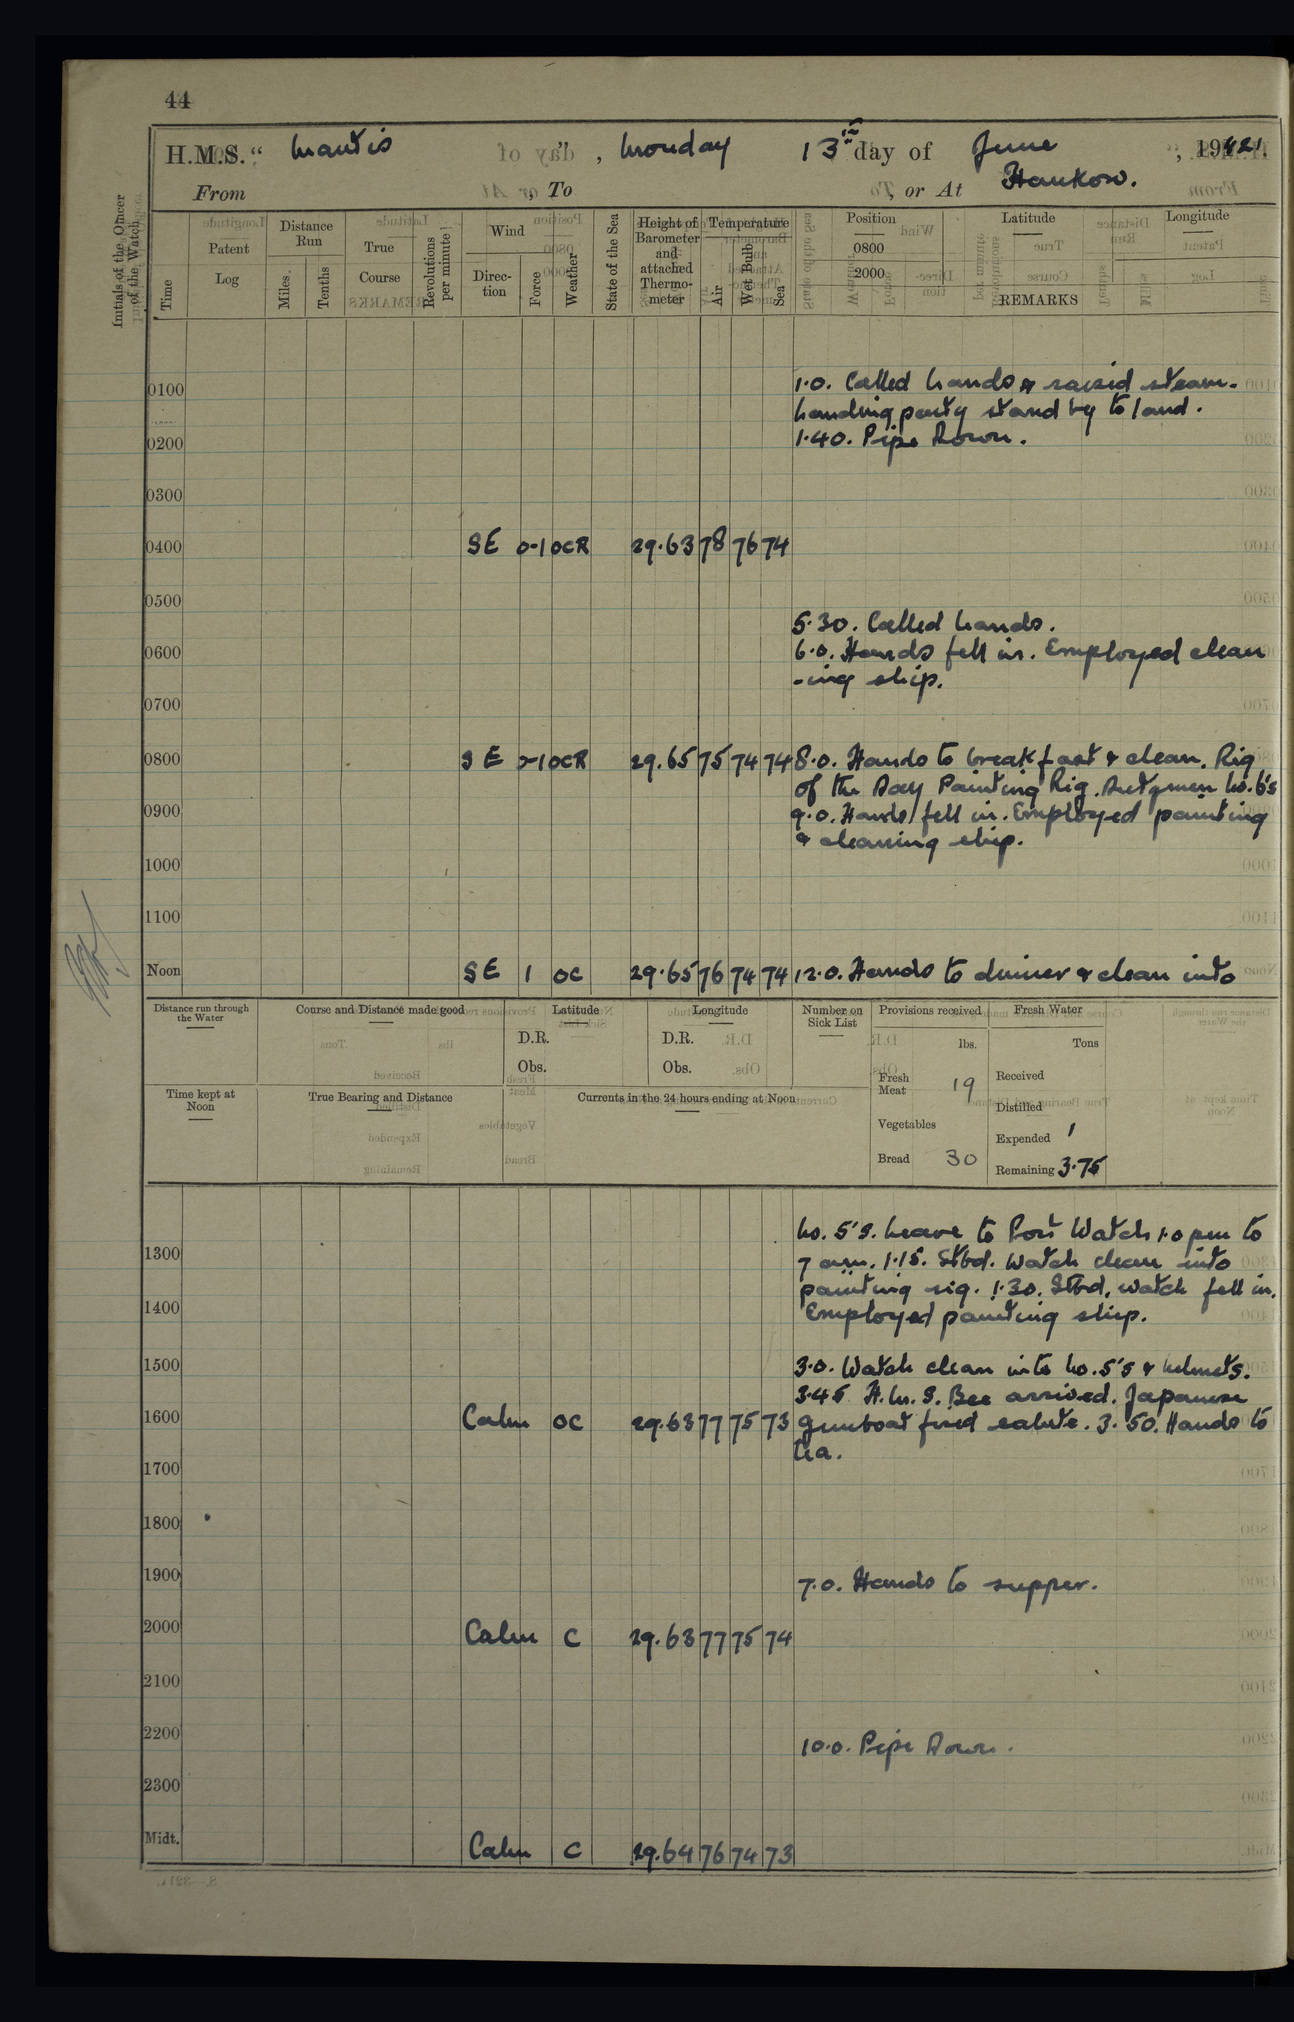 44
H.M.S. "Mantis", Monday 13th day of June, 1921.
From , To , or At Hankow.
Initials of the Officer of the Watch
Time
Patent Log
Distance Run
Miles
Tenths
True Course
Revolutions per minute
Wind
Direction
Force
Weather
State of the Sea
Height of Barometer and attached Thermometer
Temperature
Air
Wet Bulb
Sea
Position
0800
2000
Latitude
Longitude
REMARKS
0100
1.0. Called hands & raised steam.
Landing party stand by to land.
0200
1.40. Pipe Down.
0300
0400 SE 0-1 OCR 29.63 78 76 74
0500
5.30. Called hands.
0600
6.0. Hands fell in. Employed clean
-ing ship.
0700
0800 SE 0-1 OCR 29.65 75 74 74 8.0. Hands to breakfast & clean. Rig
of the Day Painting Rig. Dutymen No. 6's
0900
9.0. Hands fell in. Employed painting
& cleaning ship.
1000
1100
Noon SE 1 OC 29.65 76 74 74 12.0. Hands to dinner & clean into
Distance run through the Water
Course and Distance made good
Latitude
D.R.
Obs.
Longitude
D.R.
Obs.
Number on Sick List
Provisions received
lbs.
Fresh Meat 19
Vegetables
Bread 30
Fresh Water
Tons
Received
Distilled
Expended 1
Remaining 3.75
Time kept at Noon
True Bearing and Distance
Currents in the 24 hours ending at Noon
No. 5's. Leave to Port Watch 1.0 pm to
1300
7 am. 1.15. Stbd. Watch clean into
painting rig. 1.30. Stbd. watch fell in.
1400
Employed painting ship.
1500
3.0. Watch clean into No. 5's & helmets.
3.45 H.M.S. Bee arrived. Japanese
1600 Calm OC 29.63 77 75 73 gunboat fired salute. 3.50. Hands to
tea.
1700
1800
1900
7.0. Hands to supper.
2000 Calm C 29.63 77 75 74
2100
2200
10.0. Pipe Down.
2300
Midt. Calm C 29.64 76 74 73